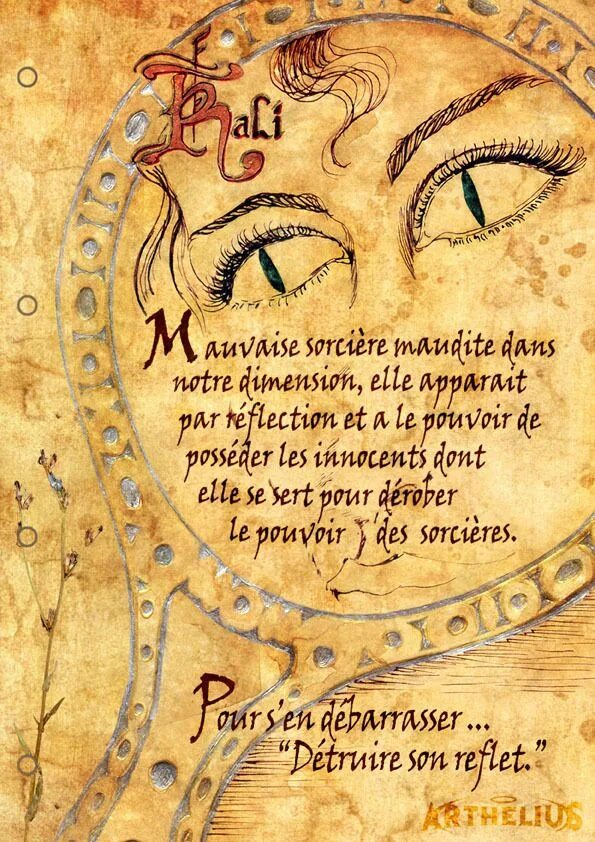 Kali
Mauvaise sorcière maudite dans
notre dimension, elle apparait
par réflection et a le pouvoir de
posséder les innocents dont
elle se sert pour dérober
le pouvoir des sorcières.
Pour s'en débarrasser ...
"Détruire son reflet."
ARTHELIUS